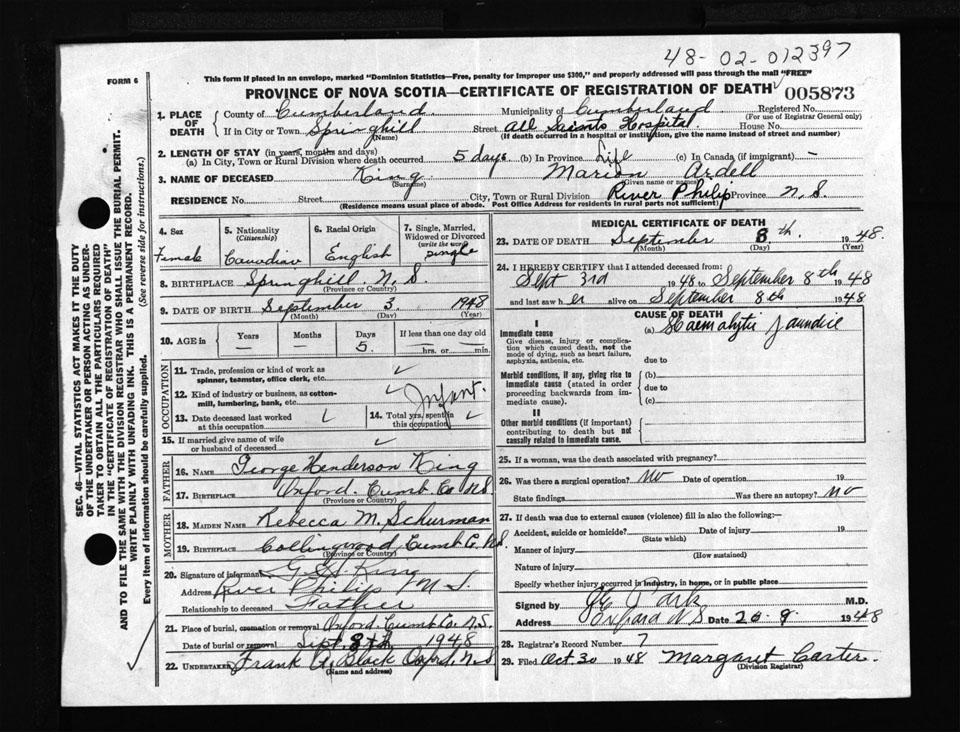 48-02-012397
FORM 6
This form if placed in an envelope, marked "Dominion Statistics—Free, penalty for improper use $300," and properly addressed will pass through the mail "FREE"
PROVINCE OF NOVA SCOTIA—CERTIFICATE OF REGISTRATION OF DEATH 005873
SEC. 46—VITAL STATISTICS ACT MAKES IT THE DUTY
OF THE UNDERTAKER OR PERSON ACTING AS UNDER-
TAKER TO OBTAIN ALL THE PARTICULARS REQUIRED
IN THE "CERTIFICATE OF REGISTRATION OF DEATH"
AND TO FILE THE SAME WITH THE DIVISION REGISTRAR WHO SHALL ISSUE THE BURIAL PERMIT.
WRITE PLAINLY WITH UNFADING INK. THIS IS A PERMANENT RECORD.
Every item of information should be carefully supplied. (See reverse side for instructions.)
1. PLACE OF DEATH
County of Cumberland Municipality of Cumberland Registered No.
(For use of Registrar General only)
If in City or Town Springhill Street All Saints Hospital House No.
(Name) (If death occurred in a hospital or institution, give the name instead of street and number)
2. LENGTH OF STAY (in years, months and days)
(a) In City, Town or Rural Division where death occurred 5 days (b) In Province Life (c) In Canada (if immigrant) —
3. NAME OF DECEASED King Marion Ardell
(Surname) (Given name or names)
RESIDENCE No. Street City, Town or Rural Division River Philip Province N.S.
(Residence means usual place of abode. Post Office Address for residents in rural parts not sufficient)
4. Sex
Female
5. Nationality
(Citizenship)
Canadian
6. Racial Origin
English
7. Single, Married,
Widowed or Divorced
(write the word)
Single
8. BIRTHPLACE Springhill N.S
(Province or Country)
9. DATE OF BIRTH September 3 1948
(Month) (Day) (Year)
10. AGE in Years Months Days If less than one day old
— — 5. hrs. or min.
OCCUPATION
11. Trade, profession or kind of work as
spinner, teamster, office clerk, etc.
12. Kind of industry or business, as cotton-
mill, lumbering, bank, etc.
Infant.
13. Date deceased last worked
at this occupation
14. Total yrs. spent in
this occupation
15. If married give name of wife
or husband of deceased
FATHER
16. NAME George Henderson King
17. BIRTHPLACE Oxford. Cumb. Co NS
(Province or Country)
MOTHER
18. MAIDEN NAME Rebecca M. Schurman
19. BIRTHPLACE Collingwood Cumb Co. NS
(Province or Country)
20. Signature of informant G H King
Address River Philip N.S.
Relationship to deceased Father
21. Place of burial, cremation or removal Oxford. Cumb Co. N.S.
Date of burial or removal Sept. 8th 1948
22. UNDERTAKER Frank A. Black Oxford, N.S
(Name and address)
MEDICAL CERTIFICATE OF DEATH
23. DATE OF DEATH September 8th. 1948
(Month) (Day)
24. I HEREBY CERTIFY that I attended deceased from:
Sept 3rd 1948 to September 8th 1948
and last saw h er alive on September 8th 1948
CAUSE OF DEATH
I
Immediate cause
Give disease, injury or complica-
tion which caused death, not the
mode of dying, such as heart failure,
asphyxia, asthenia, etc.
(a) Haemolytic Jaundice
due to
Morbid conditions, if any, giving rise to
immediate cause (stated in order
proceeding backwards from im-
mediate cause).
(b)
due to
(c)
II
Other morbid conditions (if important)
contributing to death but not
causally related to immediate cause.
25. If a woman, was the death associated with pregnancy?
26. Was there a surgical operation? no Date of operation 19
State findings Was there an autopsy? no
27. If death was due to external causes (violence) fill in also the following:—
Accident, suicide or homicide? Date of injury 19
(State which)
Manner of injury
(How sustained)
Nature of injury
Specify whether injury occurred in industry, in home, or in public place
Signed by Park M.D.
Address Oxford N S Date 20 . 9 1948
28. Registrar's Record Number 7
29. Filed Oct. 30 1948 Margaret Carter.
(Division Registrar)